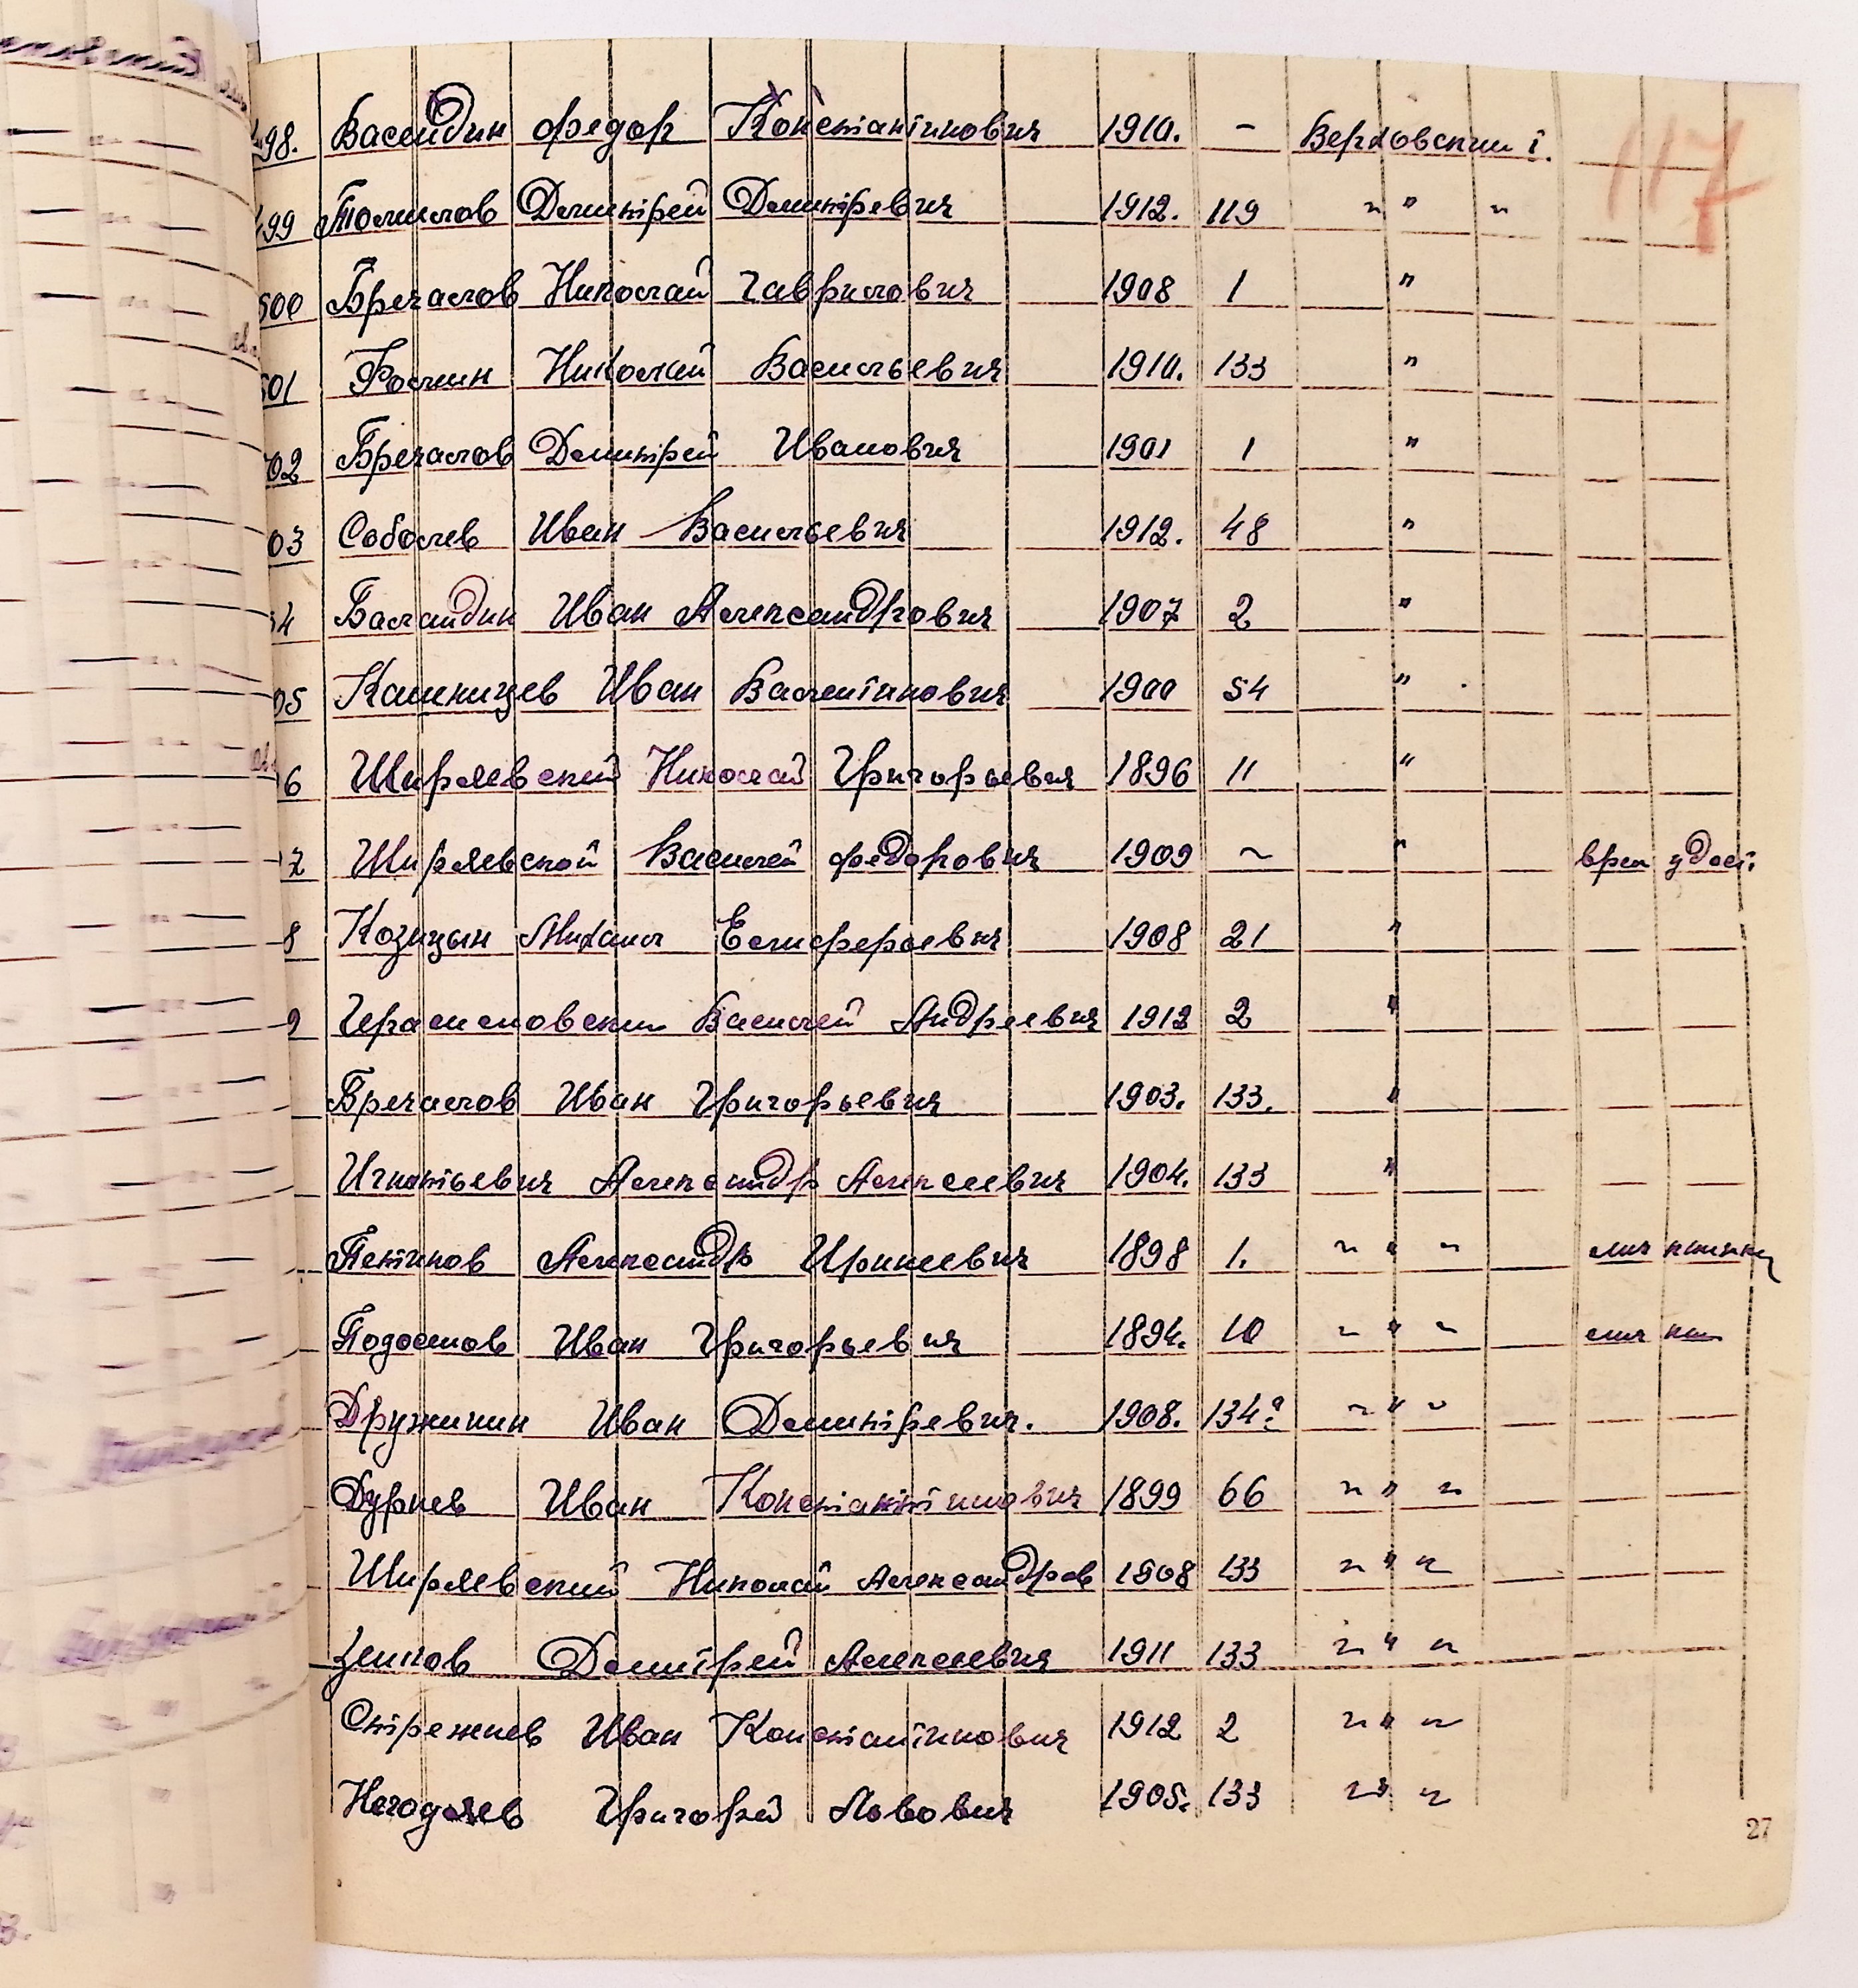 117
98. Васендин Федор Константинович 1910. – Верховский т.
99 Томилов Дмитрей Дмитревич 1912. 119 " " "
500 Бречалов Николай Гаврилович 1908 1 "
501 Фомин Николай Васильевич 1910. 133 "
02 Бречалов Дмитрей Иванович 1901 1 "
03 Соболев Иван Васильевич 1912. 48 "
04 Баландин Иван Александрович 1907 2 "
05 Камкичев Иван Валентинович 1900 54 "
6 Ширяевский Николай Григорьевич 1896 11 "
7 Ширяевской Василей Федорович 1909 ~ " врем удост.
8 Козицын Михаил Елиферьевич 1908 21 "
9 Герасимовский Василей Андреевич 1912 2 "
Бречалов Иван Григорьевич 1903. 133. "
Игнатьевич Александр Алексеевич 1904. 133 "
Петинов Александр Иринеевич 1898 1. " " "
Подосенов Иван Григорьевич 1894. 10 " " "
Дружинин Иван Дмитревич. 1908. 134а " " "
Дурнев Иван Константинович 1899 66 " " "
Ширяевский Николай Александров 1908 133 " " "
Зенков Дмитрей Алексеевич 1911 133 " " "
Стрежнев Иван Константинович 1912 2 " " "
Негодяев Григорей Львович 1905. 133 " "
27